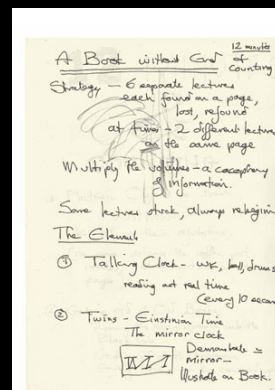 A Book without End
12 minutes
of
counting
Strategy — 6 separate lectures
each found on a page,
lost, refound
at times - 2 different lectures
on the same page
Multiply the volumes - a cacophony
of information.
Some lectures stuck, always rebeginning
The Elements
① Talking Clock -
reading out real time
(every 10 seconds
② Twins - Einstinian Time
The mirror clock
Demonstrate
mirror -
Illustrate on Book.